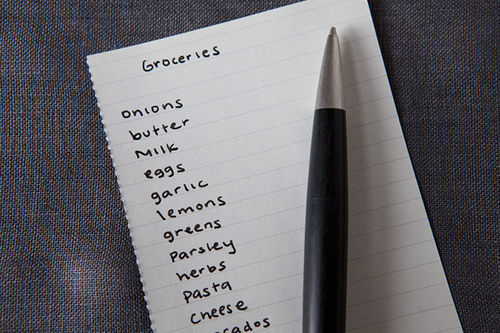 Groceries
onions
butter
Milk
eggs
garlic
lemons
greens
Parsley
herbs
Pasta
Cheese